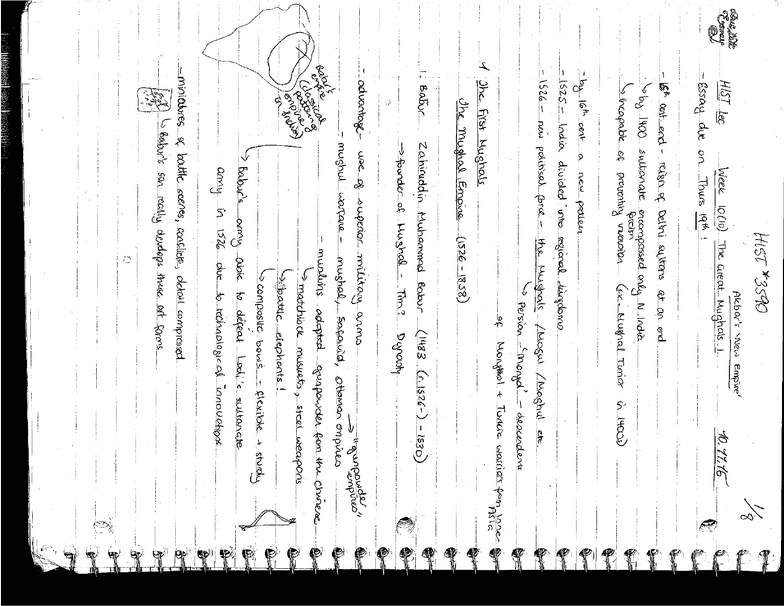 HIST*3590
1/8
Due Date
HIST Lec Week 10(10) The Great Mughals 1. Akbar's 'New Empire' 10.11.15
- Essay due on Thurs 19th!
- 15th cent end - reign of Delhi sultans at an end
↳ by 1400 sultanate encompassed only N. India
↳ incapable of preventing invasion (i.e. Mughal Timor in 1400s)
- by 16th cent a new pattern
- 1525 - India divided into regional kingdoms
- 1526 - new political force - the Mughals /Mogul /Moghul etc.
↳ Persian - 'Mongol' - descendents
of Mongol + Turkic warriors from Inner Asia
* The First Mughals
The Mughal Empire (1526-1858)
1. Babur Zahiruddin Muhammad Babur (1483 (r.1526-) - 1530)
→ founder of Mughal - Tim? Dynasty
- advantage - use of superior military arms
- mughul warfare - mughal, Safavid, Ottoman empires → "gunpowder empires"
- muslims adopted gunpowder from the chinese
↳ matchlock muskets, steel weapons
↳ battle elephants!
↳ composite bows - flexible + sturdy
↳ Babur's army able to defeat Lodi's sultanate
army in 1526 due to technological innovations
Babur's empire
(classical
empire
in India)
- miniatures of battle scenes, detail compressed
↳ Babur's son really develops these art forms